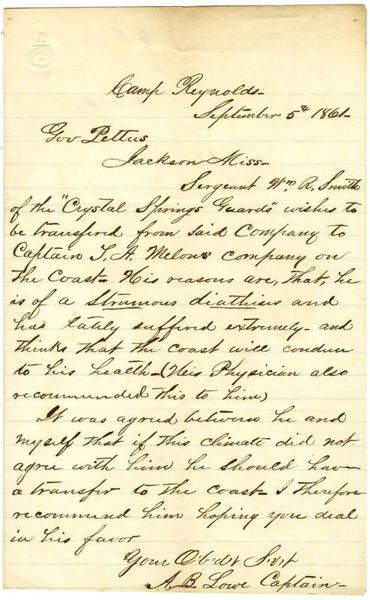 Camp Reynolds-
September 5th 1861-
Gov Pettus
Jackson Miss-
Sergeant Wm R. Smith
of the "Crystal Springs Guards" wishes to
be transfered from said Company to
Captain T. A. Melons company on
the Coast- His reasons are, that, he
is of a Strumous diathisis and
has lately suffered extremely- and
thinks that the coast will conduce
to his health- (His Physician also
recommended this to him)
It was agreed between he and
myself that if this climate did not
agree with him he should have
a transfer to the coast- I therefore
recommend him hoping you deal
in his favor
Your Obdt Svt
A. B. Lowe Captain-